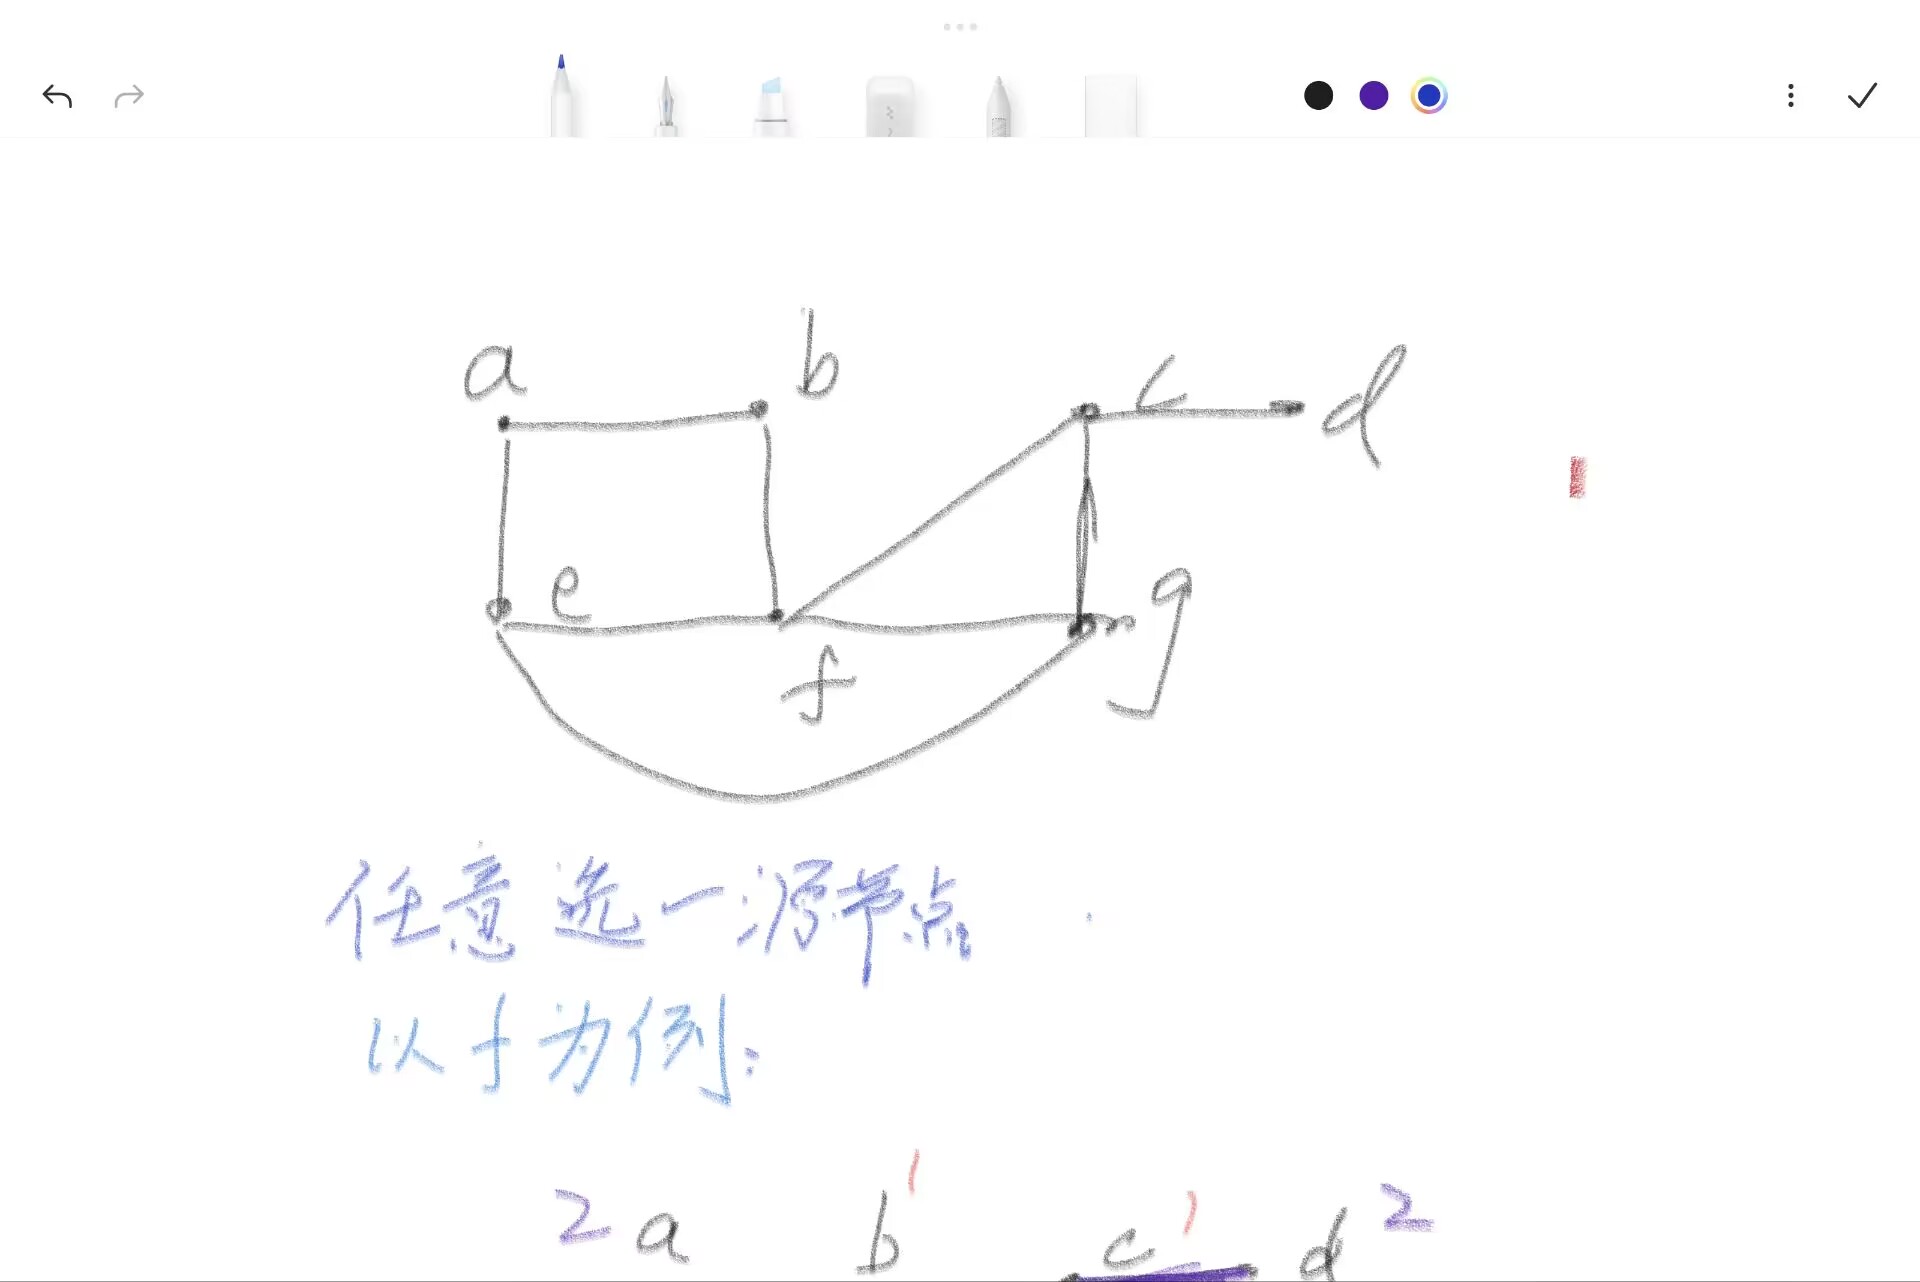 a b c d
e f g
任意选一源节点
以f为例:
2 a b 1 c 1 d 2